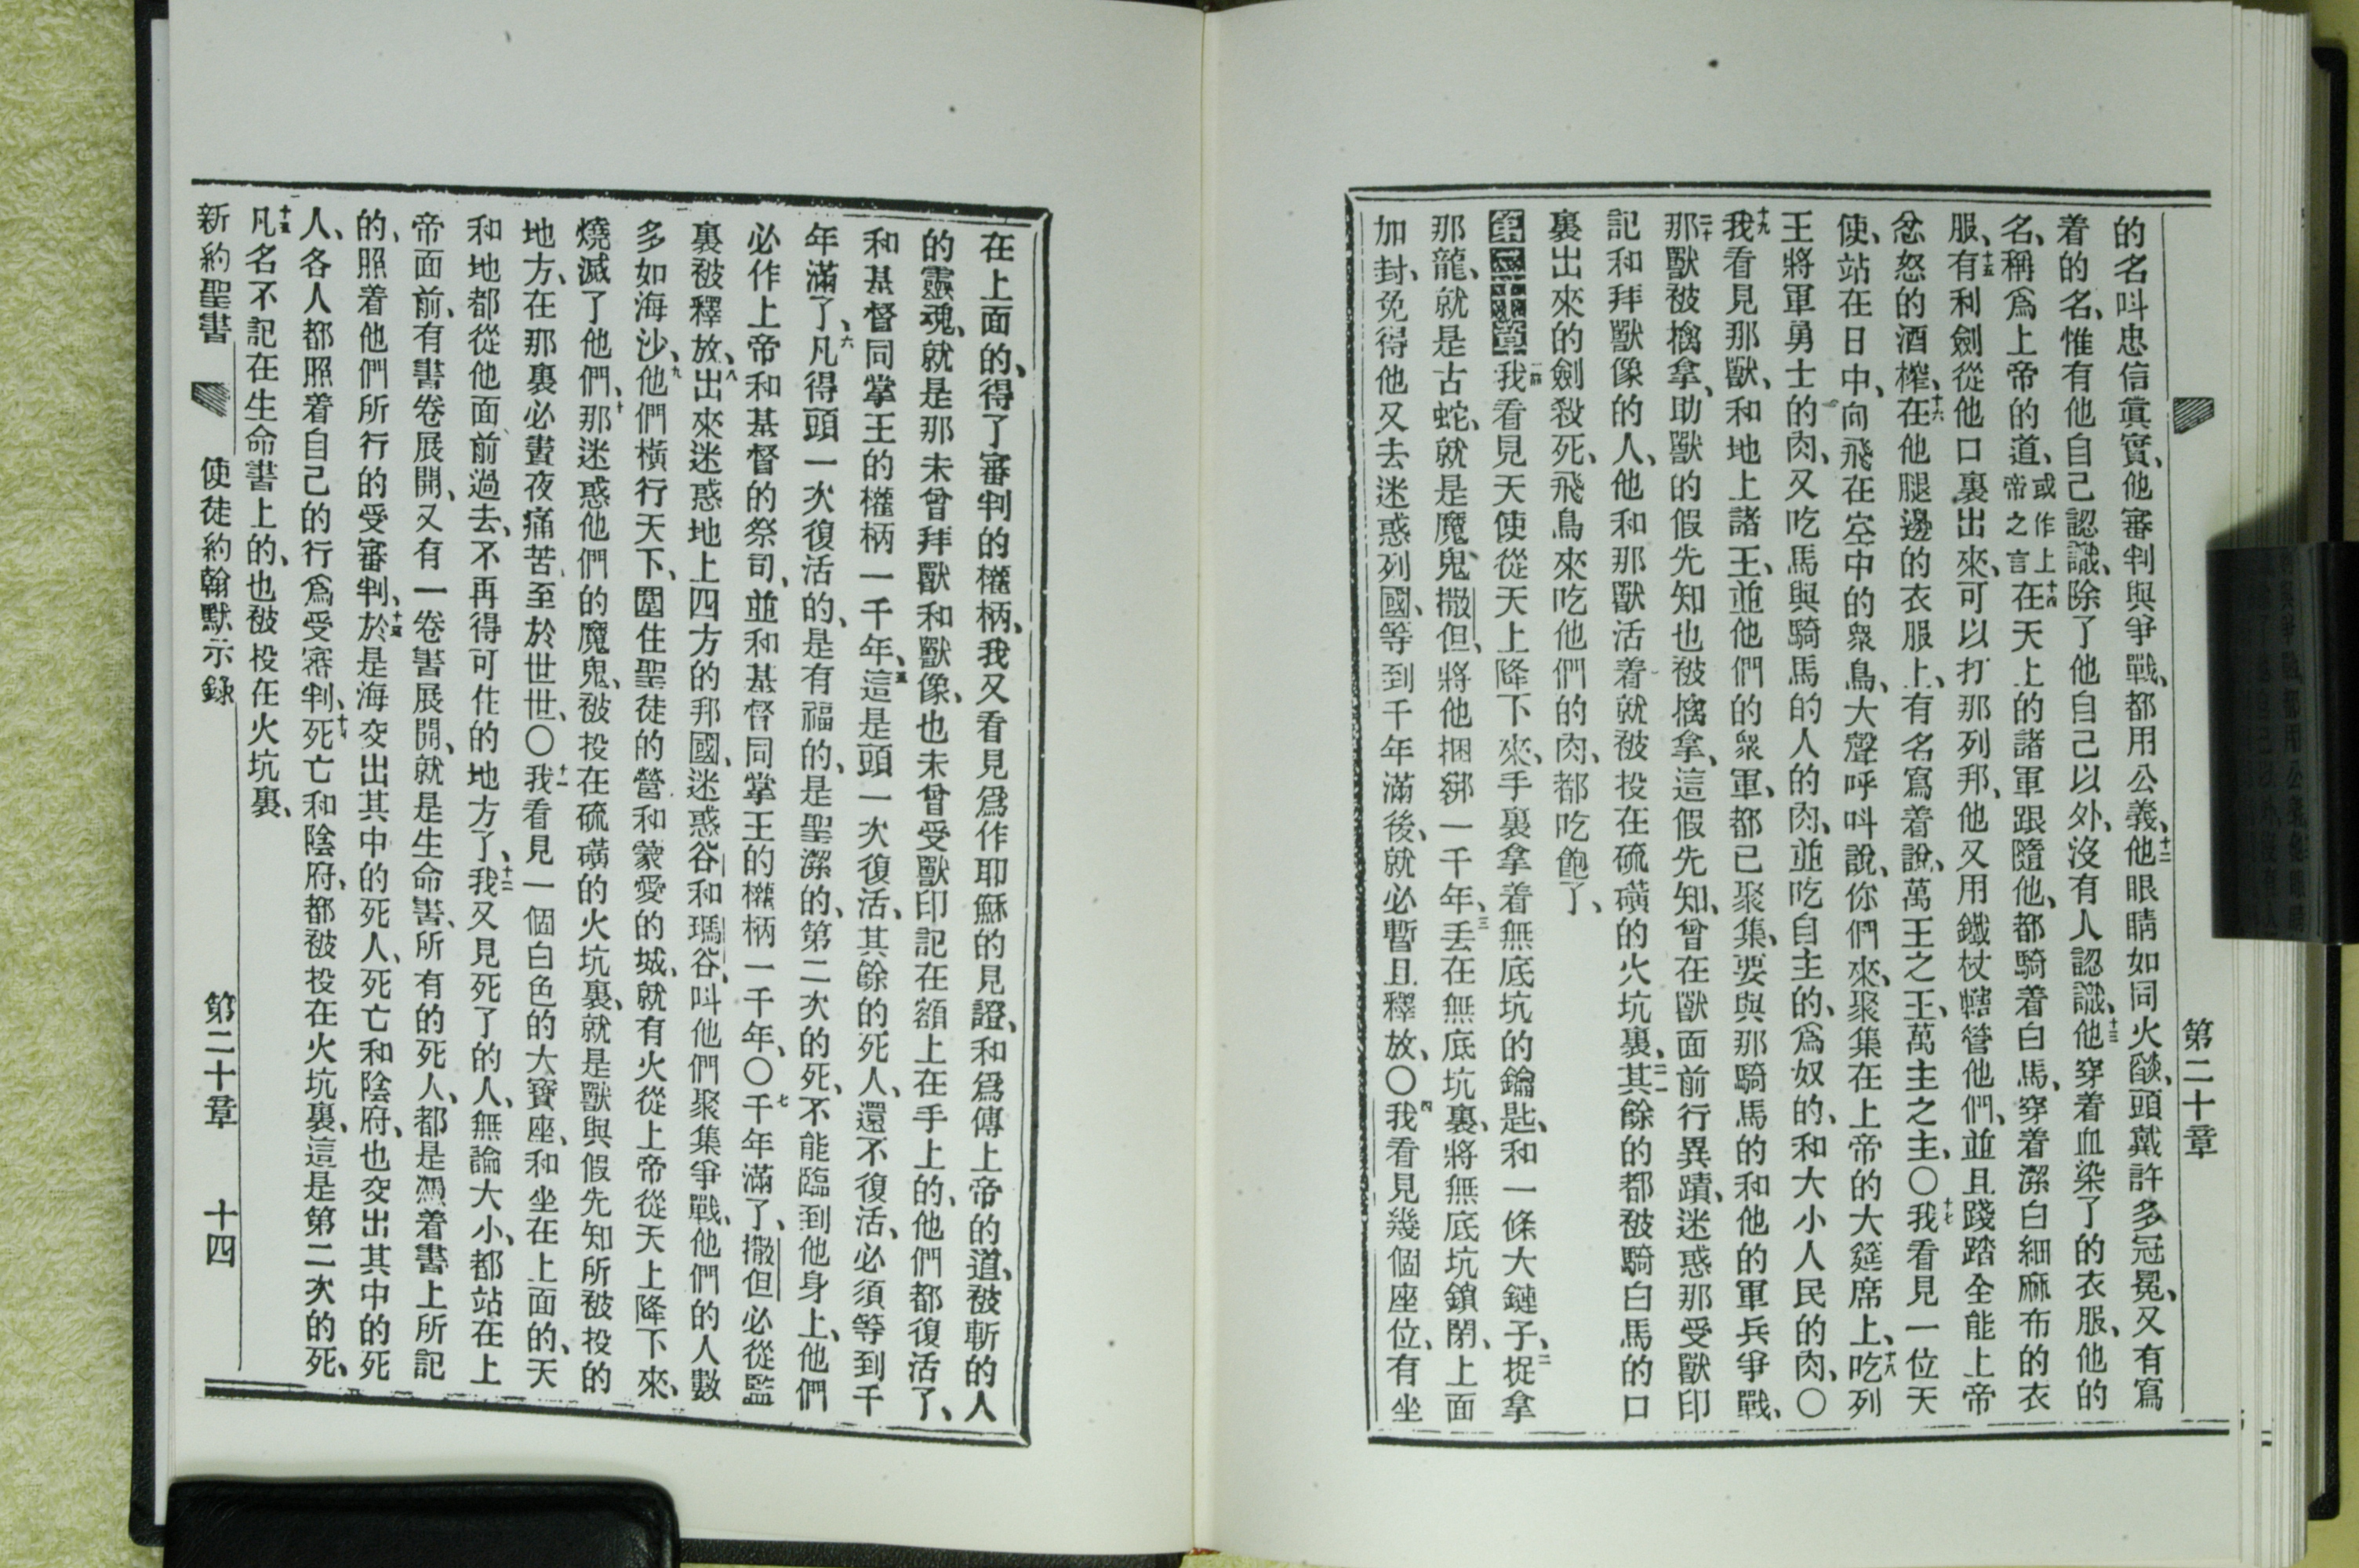 第二十章
的名叫忠信眞實、他審判與爭戰、都用公義、十二他眼睛如同火燄、頭戴許多冠冕、又有寫
着的名、惟有他自己認識、除了他自己以外、沒有人認識、十三他穿着血染了的衣服、他的
名、稱爲上帝的道、或作上帝之言十四在天上的諸軍跟隨他、都騎着白馬、穿着潔白細麻布的衣
服、十五有利劍從他口裏出來、可以打那列邦、他又用鐵杖轄管他們、並且踐踏全能上帝
忿怒的酒榨、十六在他腿邊的衣服上、有名寫着說、萬王之王、萬主之主、〇十七我看見一位天
使、站在日中、向飛在空中的衆鳥、大聲呼叫說、你們來、聚集在上帝的大筵席上、十八吃列
王將軍勇士的肉、又吃馬與騎馬的人的肉、並吃自主的、爲奴的、和大小人民的肉、〇
十九我看見那獸、和地上諸王、並他們的衆軍、都已聚集、要與那騎馬的和他的軍兵爭戰、
二十那獸被擒拿、助獸的假先知也被擒拿、這假先知、曾在獸面前行異蹟、迷惑那受獸印
記和拜獸像的人、他和那獸活着就被投在硫磺的火坑裏、二一其餘的都被騎白馬的口
裏出來的劍殺死、飛鳥來吃他們的肉、都吃飽了、
第二十章一節我看見天使從天上降下來、手裏拿着無底坑的鑰匙、和一條大鏈子、二捉拿
那龍、就是古蛇、就是魔鬼、撒但、將他捆綁一千年、三丢在無底坑裏、將無底坑鎖閉、上面
加封、免得他又去迷惑列國、等到千年滿後、就必暫且釋放、〇四我看見幾個座位、有坐
在上面的、得了審判的權柄、我又看見爲作耶穌的見證、和爲傳上帝的道、被斬的人
的靈魂、就是那未曾拜獸和獸像、也未曾受獸印記在額上在手上的、他們都復活了、
和基督同掌王的權柄一千年、五這是頭一次復活、其餘的死人、還不復活、必須等到千
年滿了、六凡得頭一次復活的、是有福的、是聖潔的、第二次的死、不能臨到他身上、他們
必作上帝和基督的祭司、並和基督同掌王的權柄一千年、〇七千年滿了、撒但必從監
裏被釋放、八出來迷惑地上四方的邦國、迷惑谷和瑪谷、叫他們聚集爭戰、他們的人數
多如海沙、九他們橫行天下、圍住聖徒的營和蒙愛的城、就有火從上帝從天上降下來、
燒滅了他們、十那迷惑他們的魔鬼、被投在硫磺的火坑裏、就是獸與假先知所被投的
地方、在那裏必晝夜痛苦至於世世、〇十一我看見一個白色的大寶座、和坐在上面的、天
和地都從他面前過去、不再得可住的地方了、十二我又見死了的人、無論大小、都站在上
帝面前、有書卷展開、又有一卷書展開、就是生命書、所有的死人、都是憑着書上所記
的、照着他們所行的受審判、十三於是海交出其中的死人、死亡和陰府、也交出其中的死
人、各人都照着自己的行爲受審判、十四死亡和陰府、都被投在火坑裏、這是第二次的死、
十五凡名不記在生命書上的、也被投在火坑裏、
新約聖書 使徒約翰默示錄 第二十章 十四